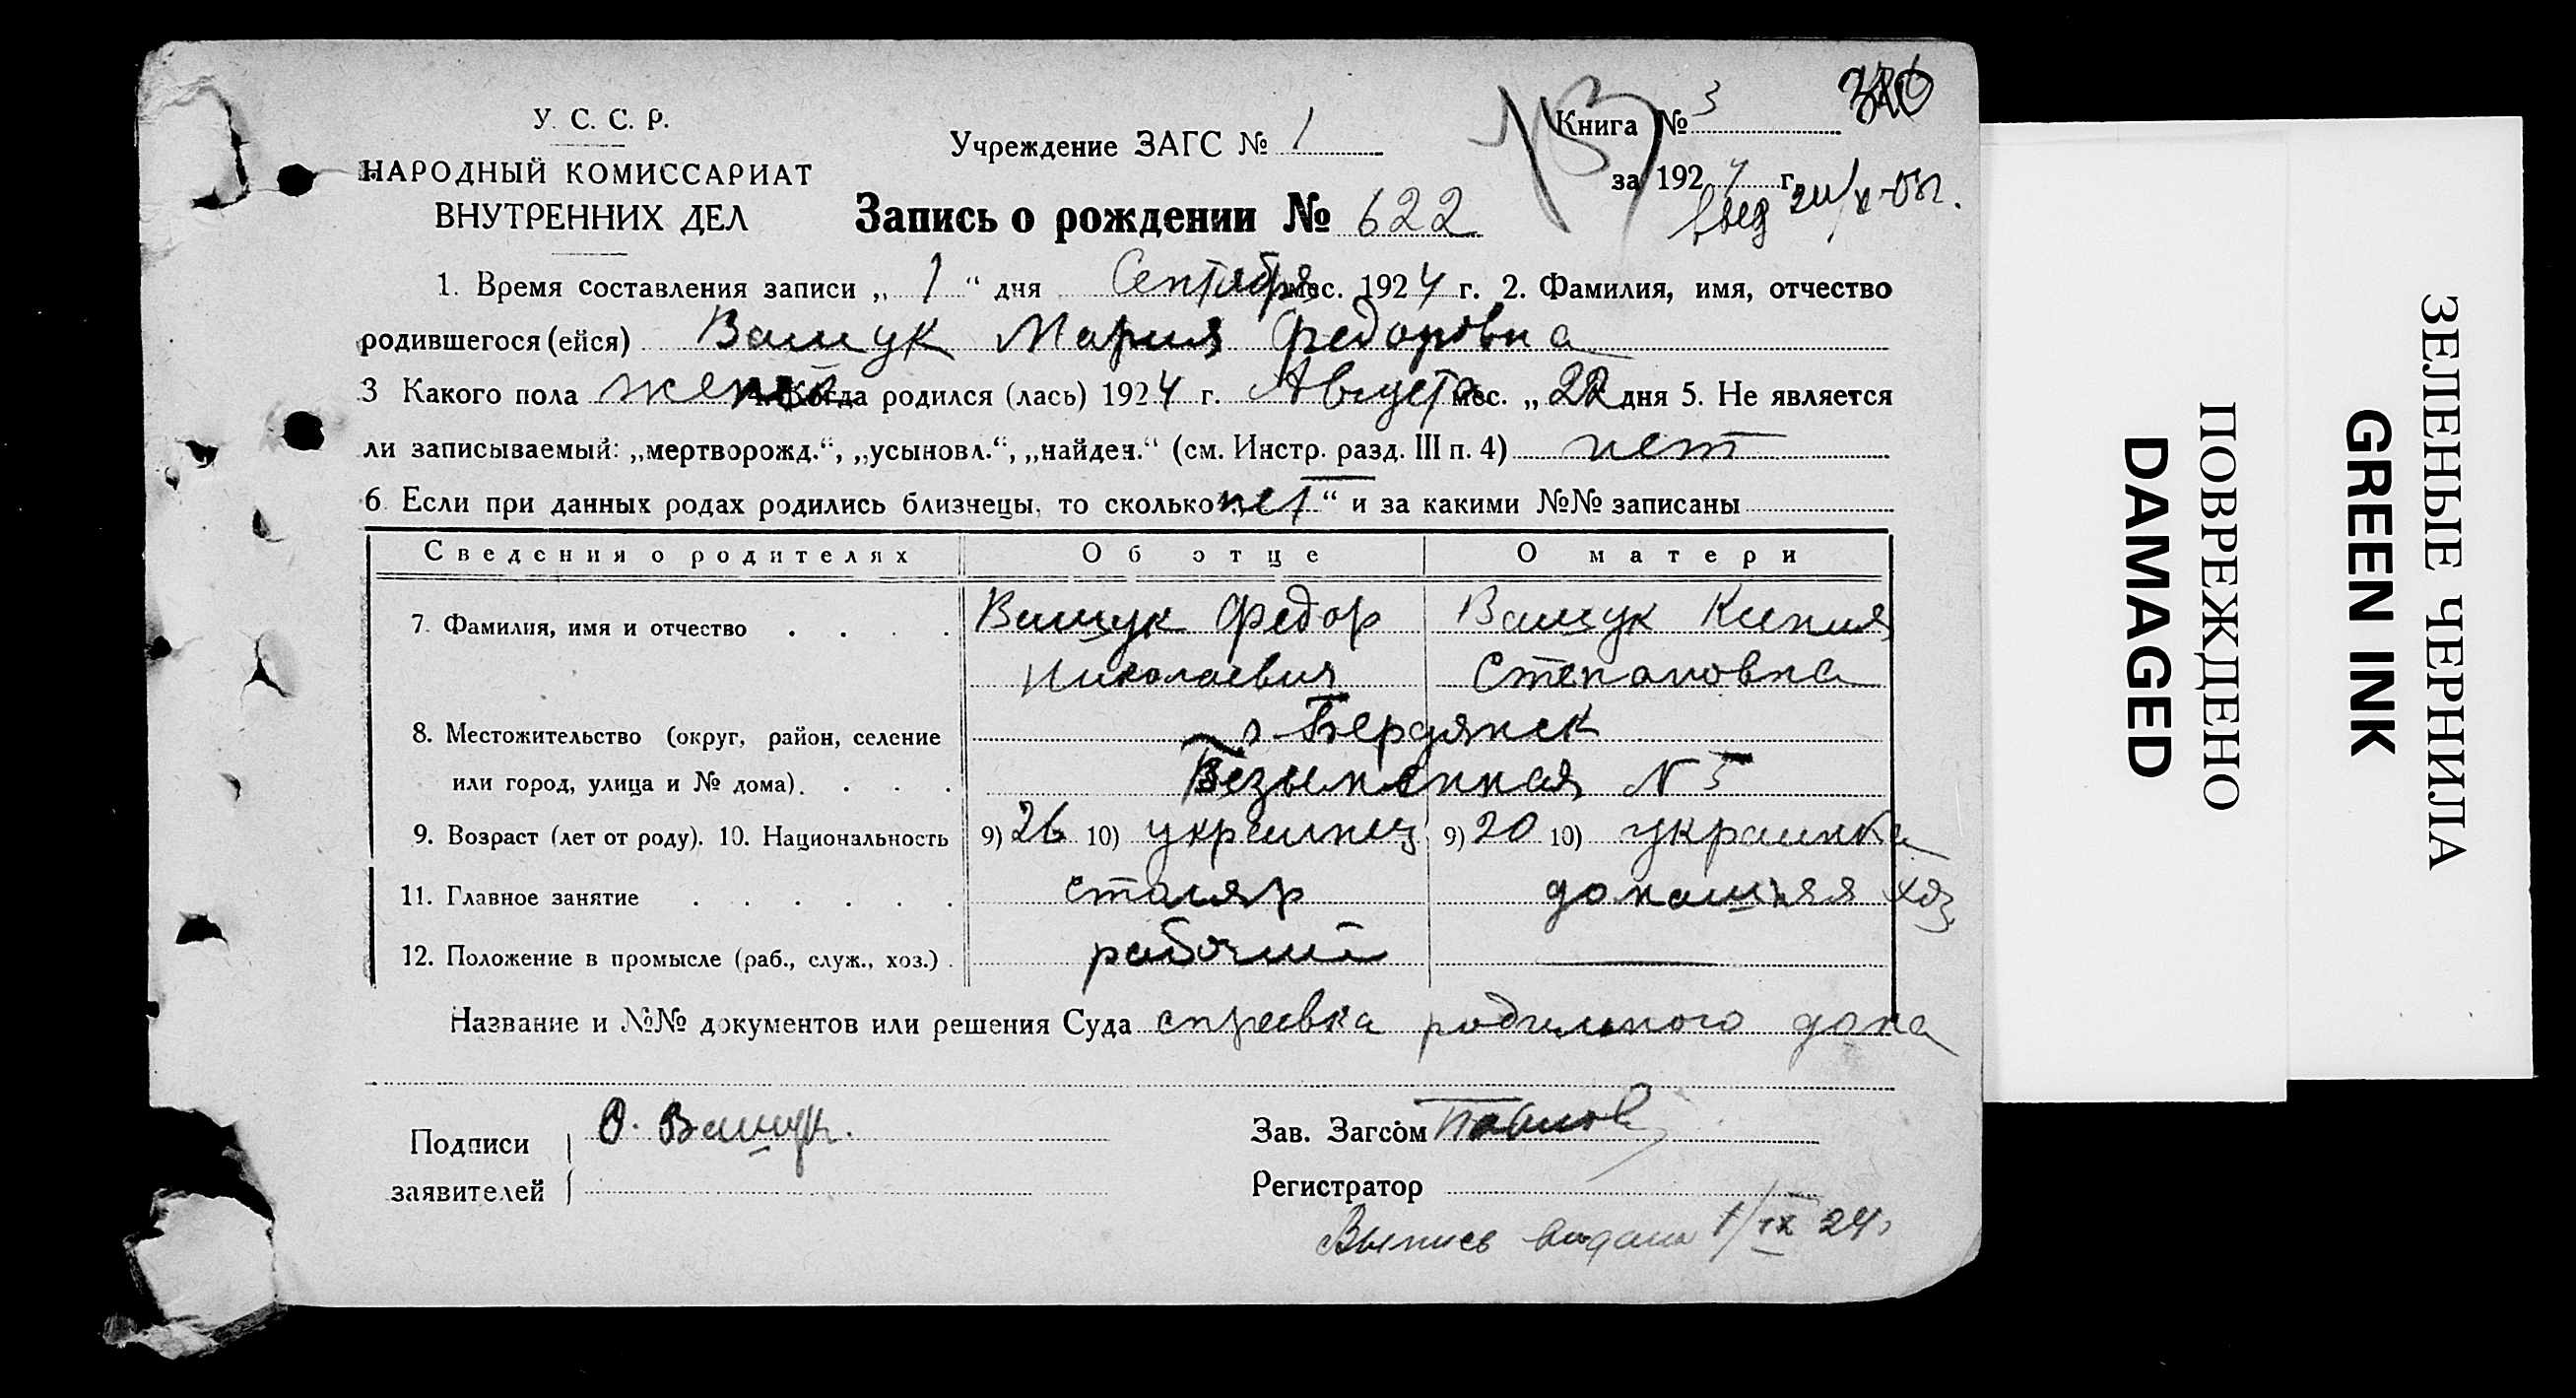 У. С. С. Р.
НАРОДНЫЙ КОМИССАРИАТ
ВНУТРЕННИХ ДЕЛ
Учреждение ЗАГС № 1
Книга № 3
за 1924 г.
Запись о рождении № 622
1. Время составления записи „ 1 “ дня Сентября мес. 1924 г. 2. Фамилия, имя, отчество
родившегося (ейся) Ващук Мария Федоровна
3 Какого пола женск 4. Когда родился (лась) 1924 г. Августа мес. „ 22 дня 5. Не является
ли записываемый: „мертворожд.“, „усыновл.“, „найден.“ (см. Инстр. разд. III п. 4) нет
6 Если при данных родах родились близнецы, то сколько „нет“ и за какими №№ записаны
Сведения о родителях Об отце О матери
7. Фамилия, имя и отчество . . . . Ващук Федор Ващук Ксения
Николаевич Степановна
8. Местожительство (округ, район, селение г. Бердянск
или город, улица и № дома). . . . Безыменная N 5
9. Возраст (лет от роду). 10. Национальность 9) 26 10) украинец 9) 20 10) украинка
11. Главное занятие . . . . . . столяр домашняя хоз
12. Положение в промысле (раб., служ., хоз.) . рабочий
Название и №№ документов или решения Суда справка родильного дома
Подписи Ващук.
заявителей
Зав. Загсом Павлов
Регистратор
Выпись выдана 1/IX 24 г
ПОВРЕЖДЕНО
DAMAGED
ЗЕЛЕНЫЕ ЧЕРНИЛА
GREEN INK